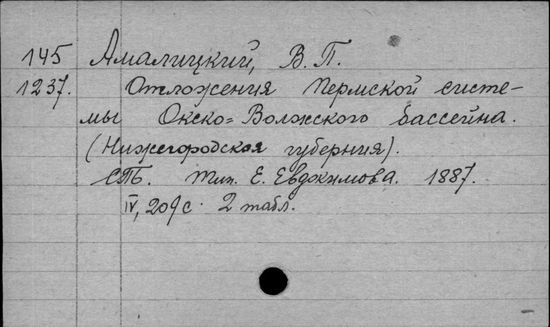 145 Амалицкий, В. П.
1237. Отложения Пермской систе-
мы Окско-Волжского бассейна.
(Нижегородская губерния).
СПБ. Тип. Е. Евдокимова. 1887.
IV, 209 с. 2 табл.